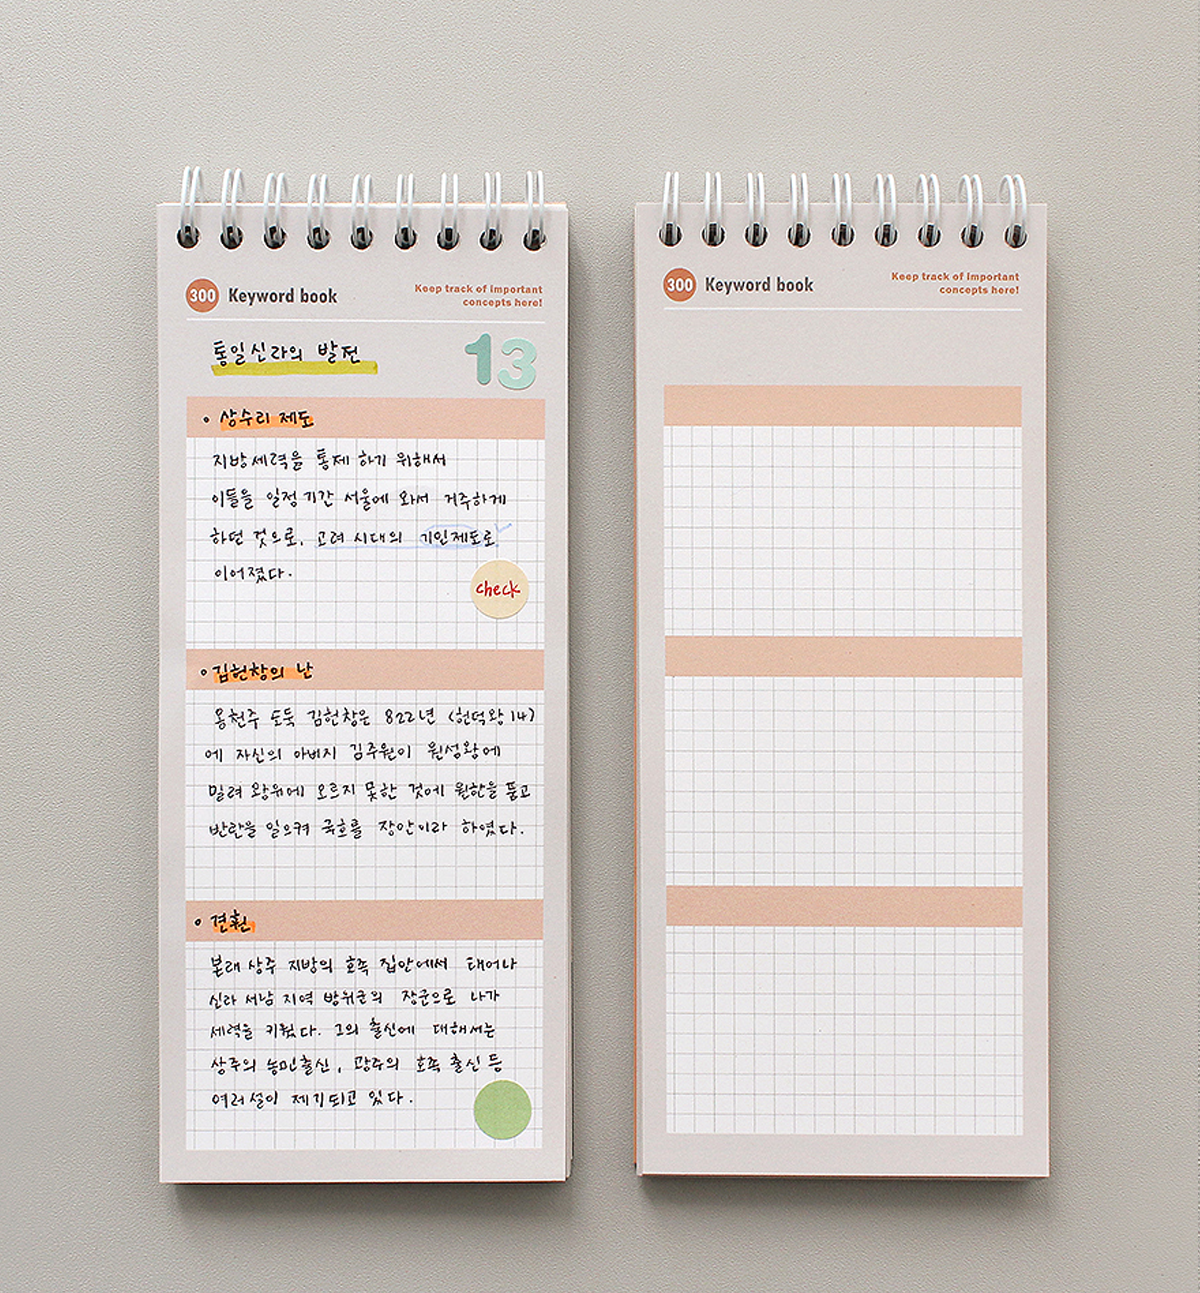 300 Keyword book
Keep track of important
concepts here!
통일신라의 발전
13
• 상수리 제도
지방세력을 통제 하기 위해서
이들을 일정 기간 서울에 와서 거주하게
하던 것으로, 고려 시대의 기인제도로
이어졌다.
check
• 김헌창의 난
웅천주 도독 김헌창은 822년 (헌덕왕 14)
에 자신의 아버지 김주원이 원성왕에
밀려 왕위에 오르지 못한 것에 원한을 품고
반란을 일으켜 국호를 장안이라 하였다.
• 견훤
본래 상주 지방의 호족 집안에서 태어나
신라 서남 지역 방위군의 장군으로 나가
세력을 키웠다. 그의 출신에 대해서는
상주의 농민출신, 광주의 호족 출신 등
여러설이 제기되고 있다.
300 Keyword book
Keep track of important
concepts here!